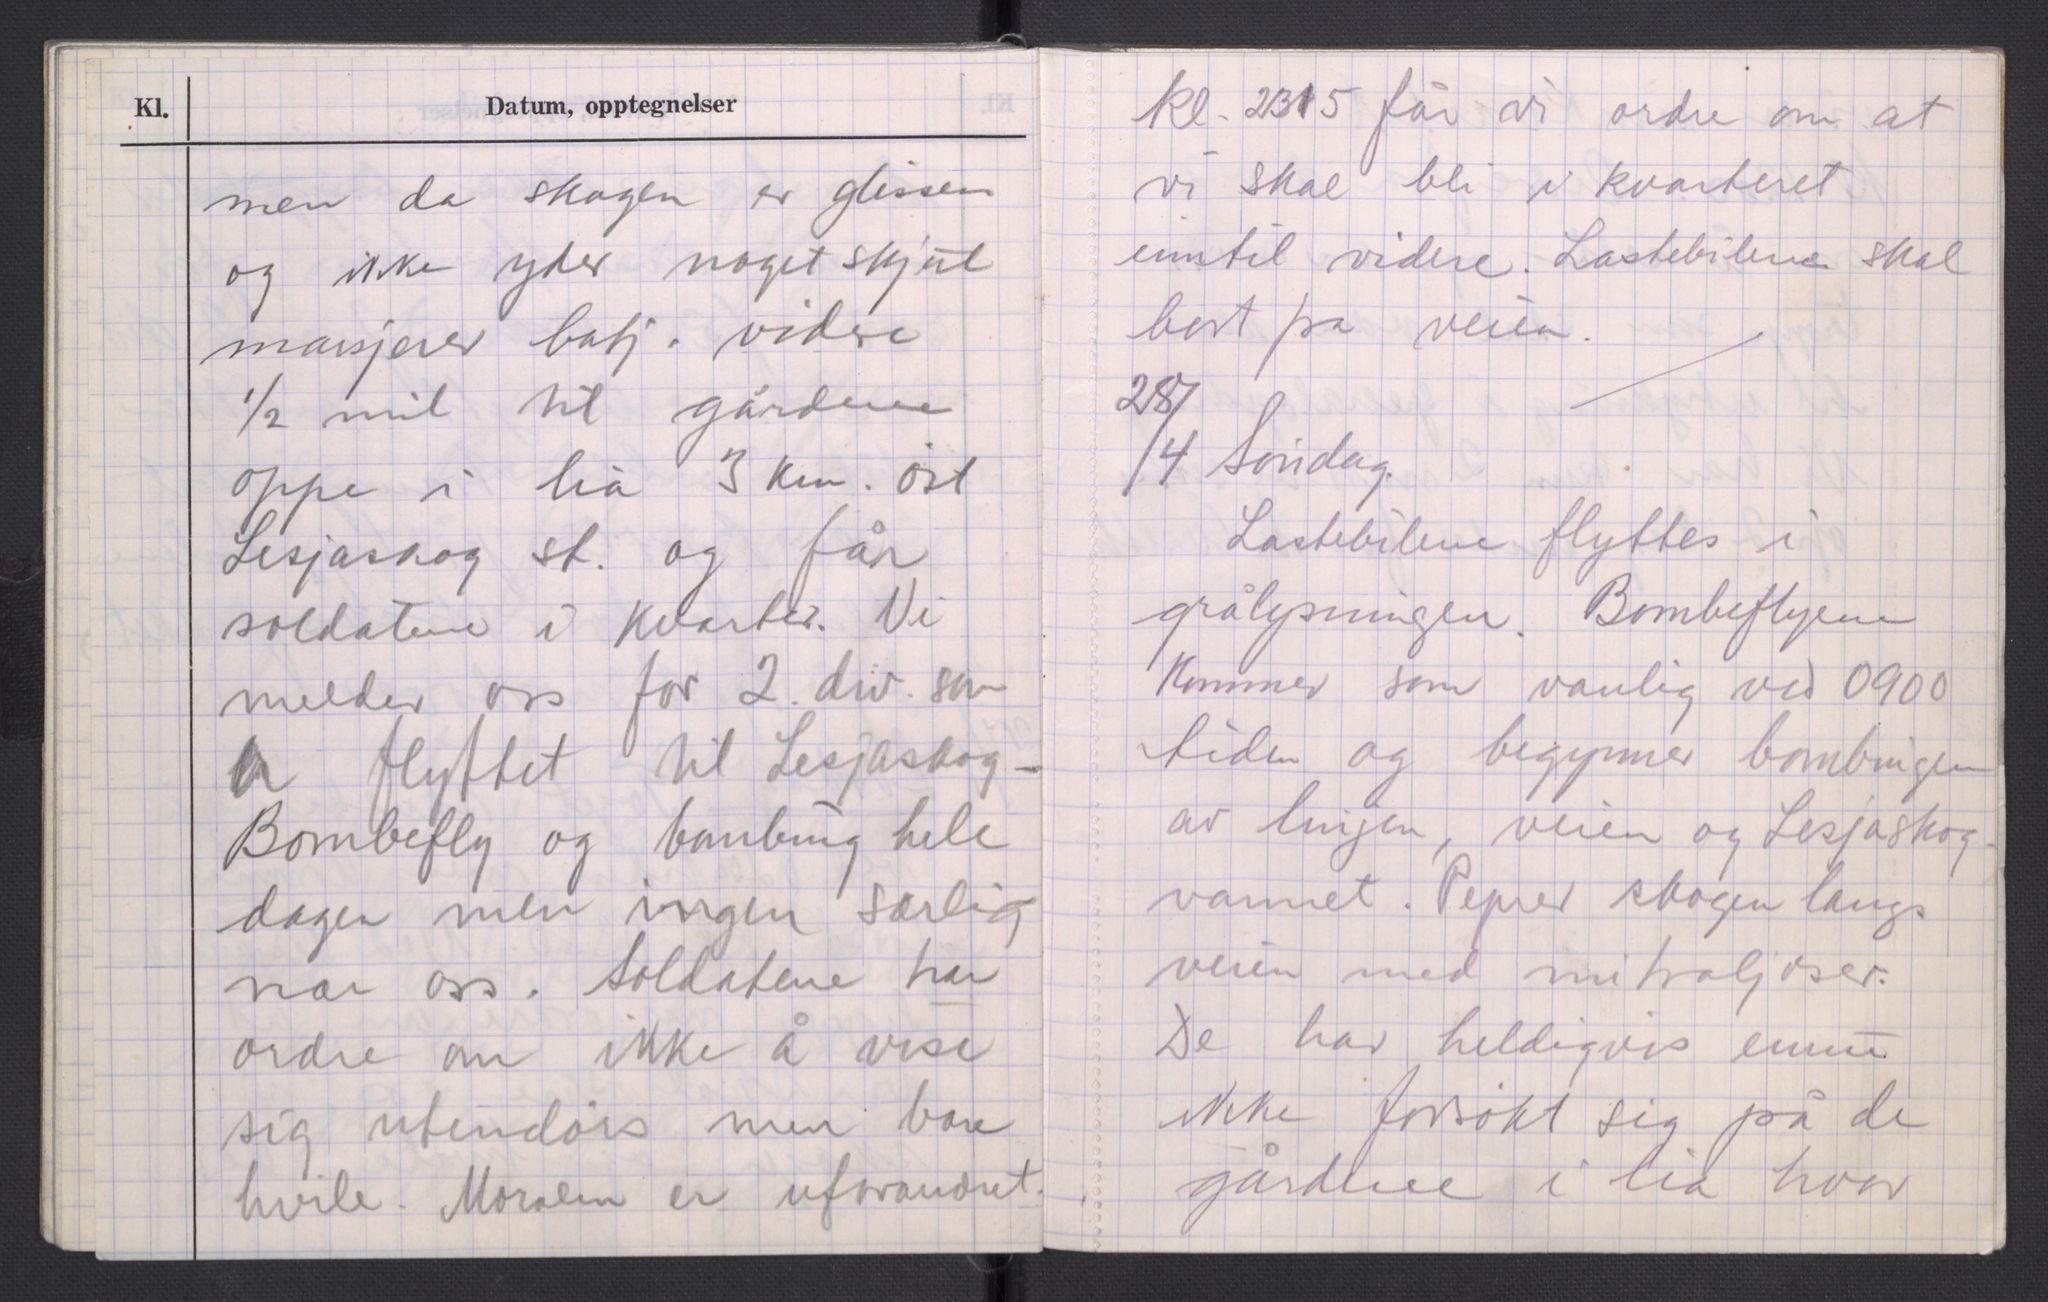 Kl. Datum, opptegnelser
men da skogen er glissen
og ikke yder noget skjul
marsjerer batj. videre
1/2 mil til gårdene
oppe i lia 3 km. øst
Lesjaskog st. og får
soldatene i kvarter. Vi
melder oss for 2. div. som
er flyttet til Lesjaskog-
Bombefly og bombing hele
dagen men ingen særlig
nær oss. Soldatene har
ordre om ikke å vise
sig utendørs men bare
hvile. Moralen er uforandret.
kl. 2315 får vi ordre om at
vi skal bli i kvarteret
inntil videre. Lastebilene skal
bort på veien.
28/
/4 Søndag.
Lastebilene flyttes i
grålysningen. Bombeflyene
kommer som vanlig ved 0900
tiden og begynner bombingen
av linjen, veien og Lesjaskog-
vannet. Peprer skogen langs
veien med mitraljøser.
De har heldigvis ennu
ikke forsøkt sig på de
gårdene i lia hvor